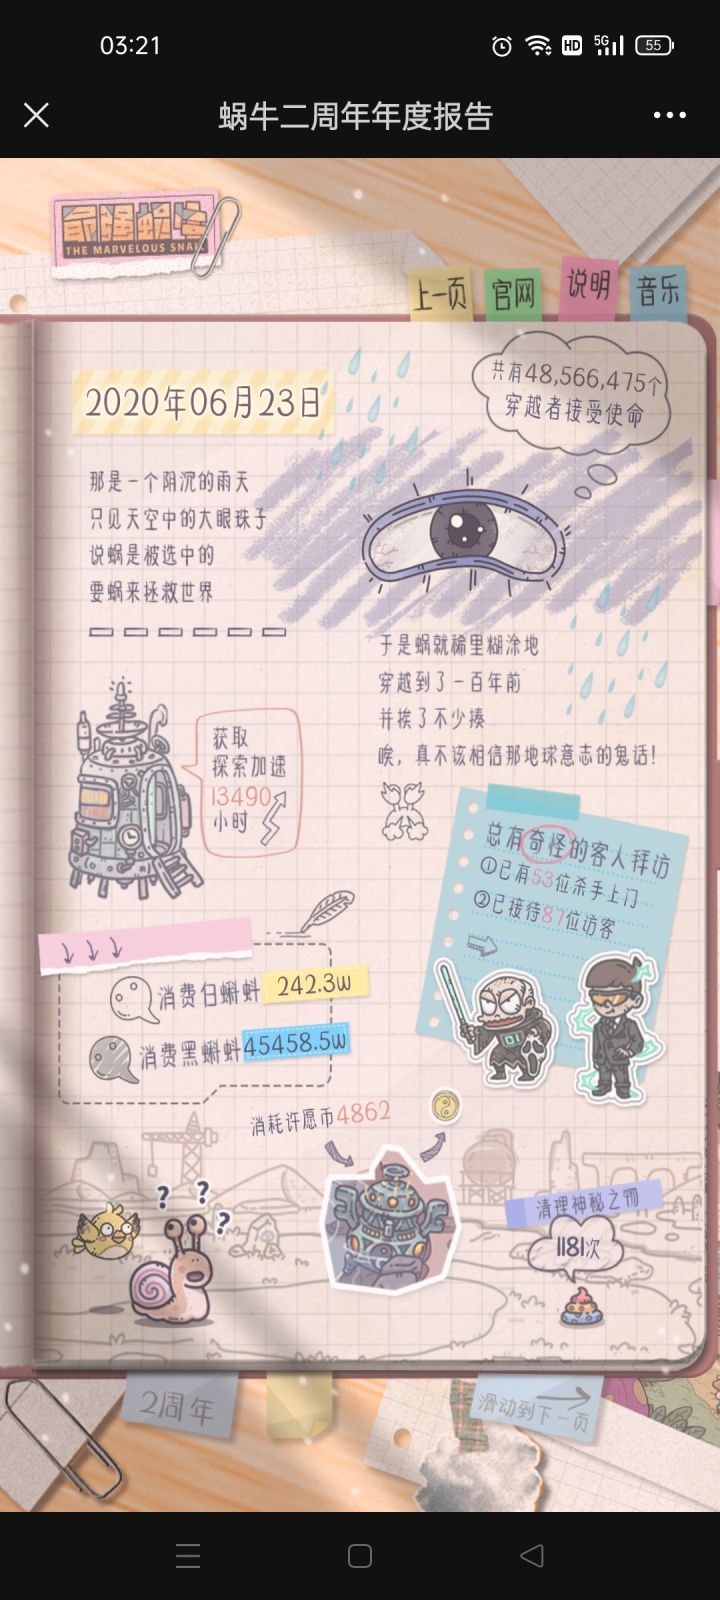 03:21
HD
5G
55
蜗牛二周年年度报告
最强蜗牛
THE MARVELOUS SNAIL
上一页
官网
说明
音乐
2020年06月23日
共有48,566,475个
穿越者接受使命
那是一个阴沉的雨天
只见天空中的大眼珠子
说蜗是被选中的
要蜗来拯救世界
于是蜗就稀里糊涂地
穿越到了一百年前
并挨了不少揍
唉，真不该相信那地球意志的鬼话！
获取
探索加速
13490
小时
总有奇怪的客人拜访
①已有53位杀手上门
②已接待87位访客
消费白蝌蚪 242.3w
消费黑蝌蚪 45458.5w
消耗许愿币4862
? ? ?
清理神秘之物
1181次
2周年
滑动到下一页